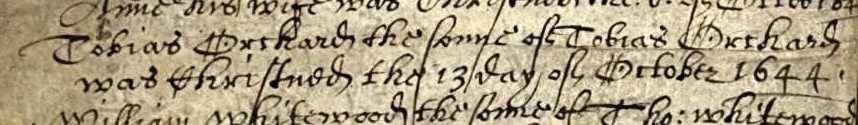 Anne his wife was Christned the 6. of October
Tobias Orchard the sonne of Tobias Orchard
was Christned the 13 day of October 1644.
William Whitewood the sonne of Tho: Whitewood